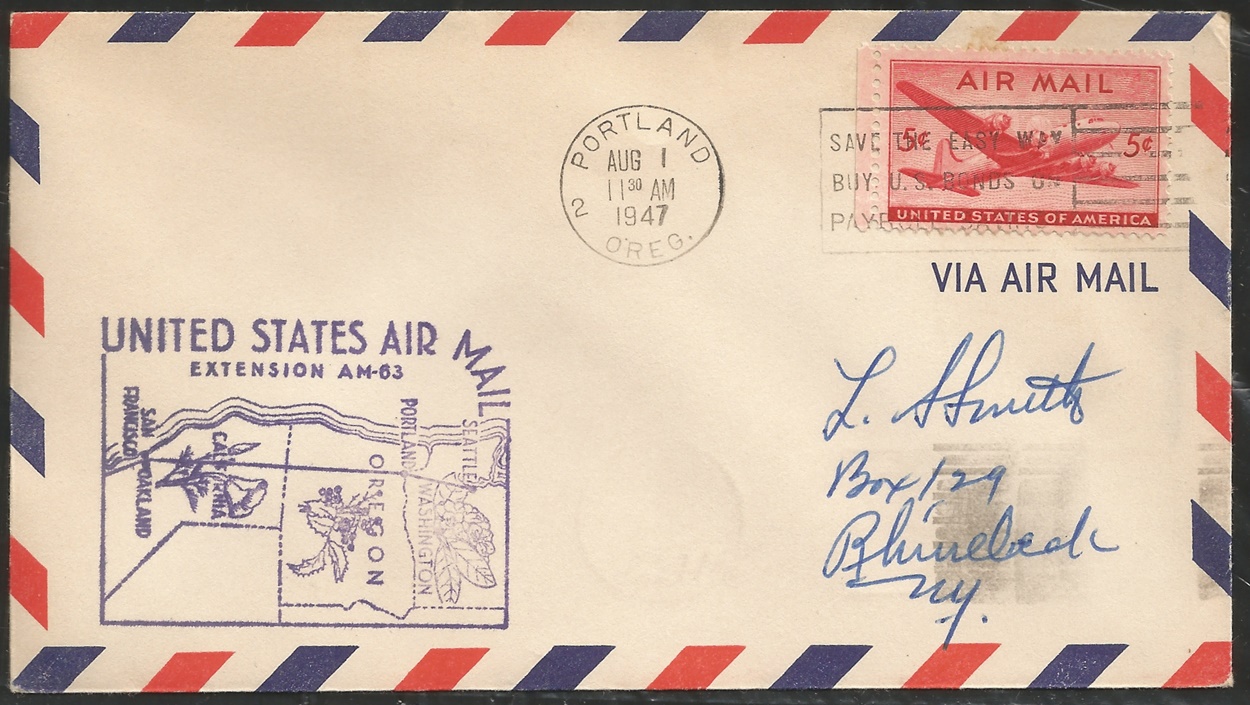 AIR MAIL
5¢ 5¢
UNITED STATES OF AMERICA
SAVE THE EASY WAY
BUY U.S. BONDS
PORTLAND
AUG 1
11 30 AM
1947
2 OREG.
VIA AIR MAIL
UNITED STATES AIR MAIL
EXTENSION AM-63
SAN FRANCISCO
OAKLAND
CALIFORNIA
OREGON
PORTLAND
WASHINGTON
SEATTLE
L. Smith
Box 129
Rhinebeck
NY.